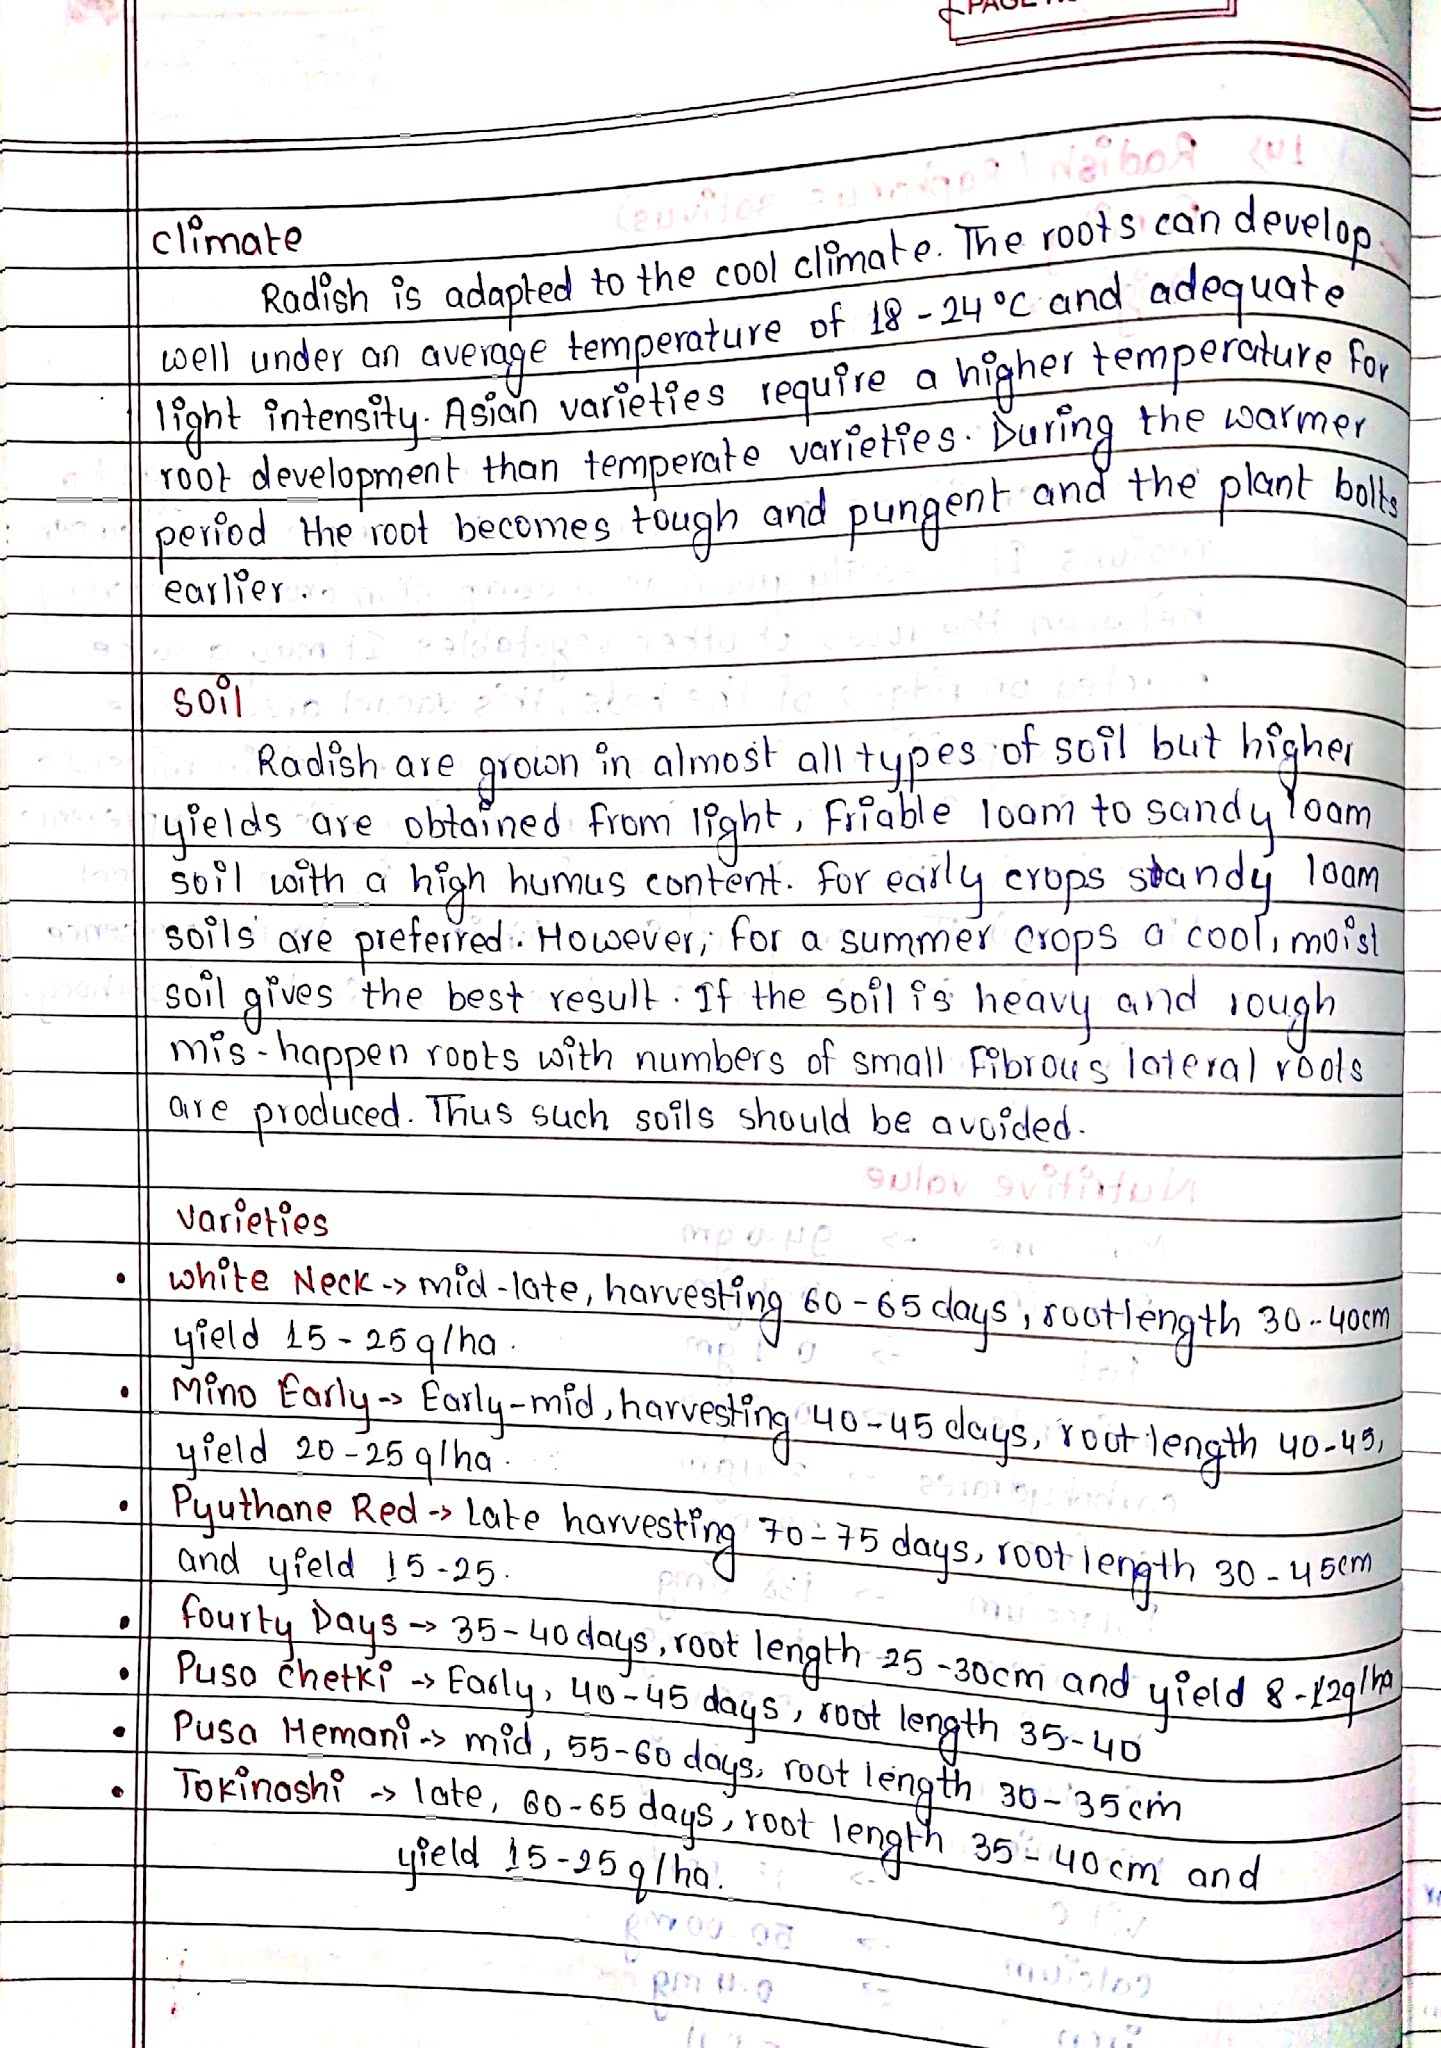 PAGE
climate
Radish is adapted to the cool climate. The roots can develop
well under an average temperature of 18-24°C and adequate
light intensity. Asian varieties require a higher temperature for
root development than temperate varieties. During the warmer
period the root becomes tough and pungent and the plant bolts
earlier..
soil
Radish are grown in almost all types of soil but higher
yields are obtained from light, friable loam to sandy loam
soil with a high humus content. For early crops standy loam
soils are preferred. However, for a summer crops a cool, moist
soil gives the best result. If the soil is heavy and rough
mis-happen roots with numbers of small fibrous lateral roots
are produced. Thus such soils should be avoided.
varieties
• White Neck -> mid-late, harvesting 60-65 days, root length 30-40cm
yield 15-25 q/ha.
• Mino Early -> Early-mid, harvesting 40-45 days, root length 40-45,
yield 20-25 q/ha.
• Pyuthane Red -> Late harvesting 70-75 days, root length 30-45cm
and yield 15-25.
• fourty Days -> 35-40 days, root length 25-30cm and yield 8-12q/ha
• Puso chetki -> Early, 40-45 days, root length 35-40
• Pusa Hemani -> mid, 55-60 days, root length 30-35cm
• Tokinashi -> late, 60-65 days, root length 35-40cm and
yield 15-25 q/ha.